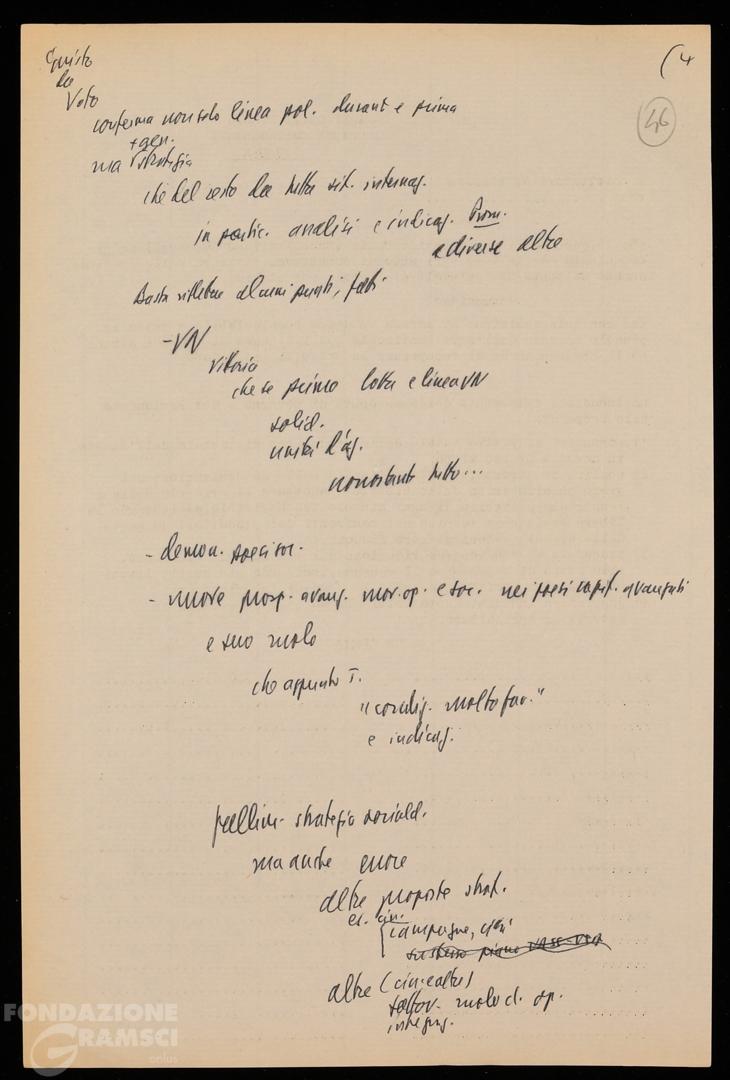 questo
(4
da
voto
46
conferma non solo linea pol. durante e prima
+ gen.
ma strategia
che del resto da tutta sit. internaz.
in partic. analisi e indicaz. Prom.
e diverse altre
Basta riflettere alcuni punti, fatti
- VN
vittoria
che se primo lotta e linea VN
solid.
unità d'az.
nonostante tutto...
- demon.
- nuove prosp. avanz. mov. op. e soc. nei paesi capit. avanzati
e suo ruolo
che appunto T.
"condiz. molto fav."
e indicaz.
fallim. strategia sociald.
ma anche
altre proposte strat.
es. cin.
campagne, città
altre (cin. e altre)
sottov. ruolo cl. op.
integraz.
FONDAZIONE
GRAMSCI
onlus